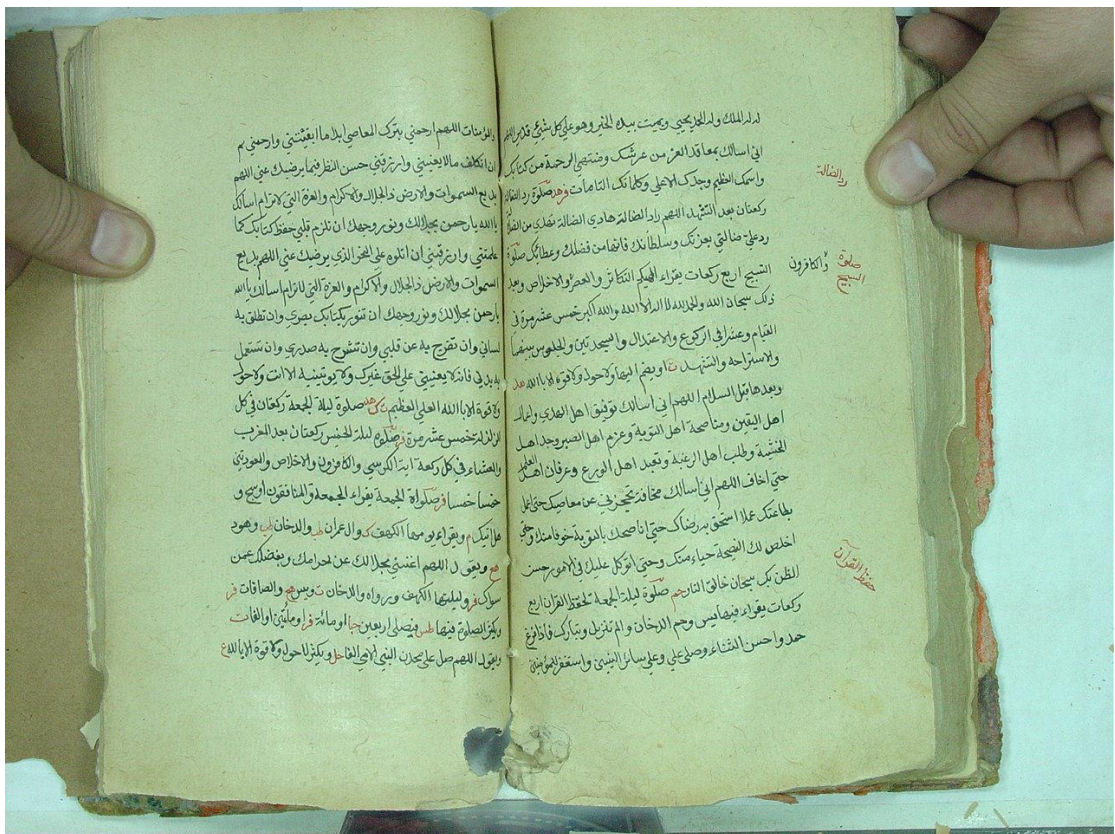 له له الملك وله الحمد يحيي ويميت بيده الخير وهو على كل شيئ قدير اللهم
اني اسالك بمعاقد العز من عرشك ومنتهى الرحمة من كتابك
واسمك العظيم وجدك الاعلى وكلماتك التامات صلوة رد الضالة
ركعتان بعد التشهد اللهم راد الضالة هادي الضالة تهدي من الضلالة
رد علي ضالتي بعزتك وسلطانك فانها من فضلك وعطائك صلوة
التسبيح اربع ركعات يقراء الهيكم التكاثر والعصر والاخلاص وبعد
ذلك سبحان الله والحمد لله لا اله الا الله والله اكبر خمس عشر مرة في
القيام وعشرا في الركوع والاعتدال والسجدتين والجلوس بينهما
والاستراحه والتشهد او يضم اليها ولا حول ولا قوة الا بالله
وبعدها قبل السلام اللهم اني اسالك توفيق اهل الهدى واعمال
اهل اليقين ومناصحة اهل التوبة وعزم اهل الصبر وجد اهل
الخشية وطلب اهل الرغبة وتعبد اهل الورع وعرفان اهل العلم
حتى اخاف اللهم اني اسالك مخافة تحجزني عن معاصيك حتى اعمل
بطاعتك عملا استحق به رضاك حتى اناصحك بالتوبة خوفا منك وحتى
اخلص لك النصيحة حياء منك وحتى اتوكل عليك في الامور حسن
الظن بك سبحان خالق النار صلوة ليلة الجمعة لحفظ القران اربع
ركعات يقراء فيها يس وحم الدخان والم تنزيل وتبارك فاذا فرغ
حمد واحسن الثناء وصلى علي وعلى سائر النبيين واستغفر للمؤمنين
رد الضالة
صلوة التسبيح
والكافرون
حفظ القرآن
والمؤمنات اللهم ارحمني بترك المعاصي ابدا ما ابقيتني وارحمني
ان اتكلف ما لا يعنيني وارزقني حسن النظر فيما يرضيك عني اللهم
بديع السموات والارض ذا الجلال والاكرام والعزة التي لا ترام اسالك
يا الله يا رحمن بجلالك ونور وجهك ان تلزم قلبي حفظ كتابك كما
علمتني وارزقني ان اتلوه على النحو الذي يرضيك عني اللهم بديع
السموات والارض ذا الجلال والاكرام والعزة التي لا ترام اسالك يا الله
يا رحمن بجلالك ونور وجهك ان تنور بكتابك بصري وان تطلق به
لساني وان تفرج به عن قلبي وان تشرح به صدري وان تستعمل
به بدني فانه لا يعينني على الحق غيرك ولا يوتينيه الا انت ولا حول
ولا قوة الا بالله العلي العظيم صلوة ليلة الجمعة ركعتان في كل
الزلزلة خمس عشر مرة صلوة ليلة الخميس ركعتان بعد المغرب
والعشاء في كل ركعة اية الكرسي والكافرون والاخلاص والمعوذتين
خمسا خمسا صلواة الجمعة يقراء الجمعة والمنافقون او سبح و
هل اتيك ويقراء يومها الكهف وال عمران والدخان وهود
ويقول اللهم اغنني بحلالك عن حرامك وبفضلك عمن
سواك وليلتها الكهف والدخان ويس والصافات
ويكثر الصلوة فيها فيصلي اربعين او مائة او مأتين او الفا
ويقول اللهم صل على محمد النبي الامي ويكثر لا حول ولا قوة الا بالله